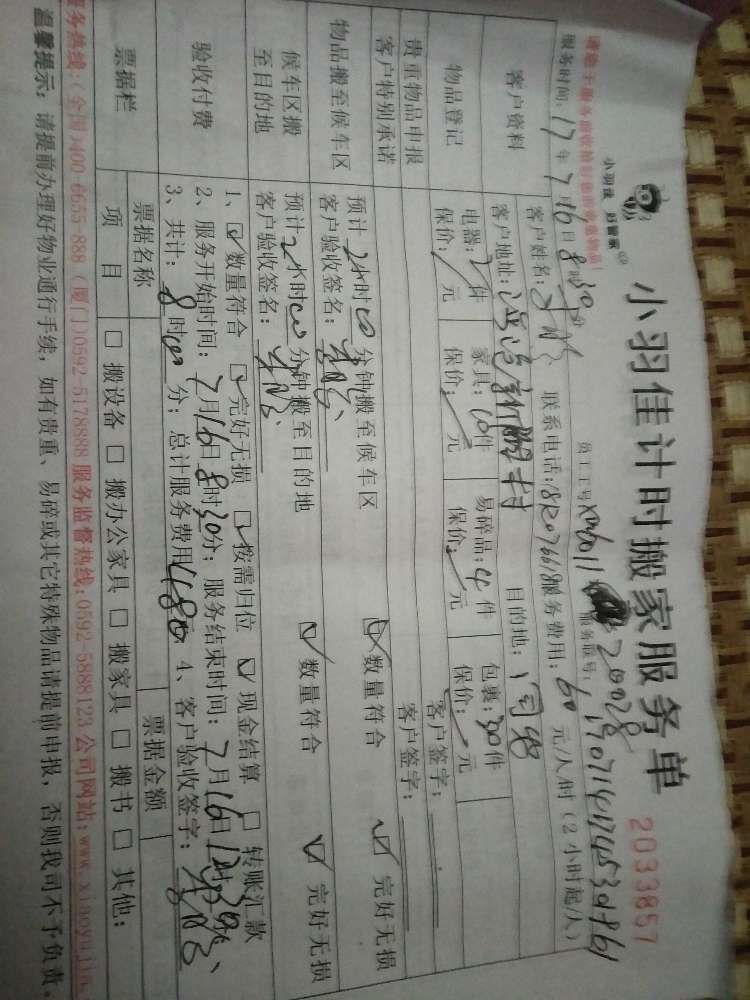 小羽佳计时搬家服务单
2033857
小羽佳
员工工号
服务单号:
请您于服务前收拾好您的贵重物品!
服务时间: 17年7月16日8时30分
客户资料
客户姓名: 联系电话: 服务费用: 60元/人/时(2小时起/人)
客户地址: 目的地: 同安
物品登记
电器: 2件 家具: 10件 易碎品: 4件 包裹: 30件
保价: 元 保价: 元 保价: 元 保价: 元
贵重物品申报 客户签字:
客户特别承诺 客户签字:
物品搬至候车区
预计2小时00分钟搬至候车区 数量符合 完好无损
客户验收签名:
候车区搬至目的地
预计2小时00分钟搬至目的地 数量符合 完好无损
客户验收签名:
验收付费
1、数量符合 完好无损 按需归位 现金结算 转账汇款
2、服务开始时间: 7月16日8时30分; 服务结束时间: 7月16日
3、共计: 8时00分; 总计服务费用480 4、客户验收签字:
票据栏
票据名称 票据金额
项目 搬设备 搬办公家具 搬家具 搬书 其他:
服务热线:(全国)400-6655-888 (厦门)0592-5178888 服务监督热线:0592-5888123 公司网站:www.xiaoyujia.
温馨提示: 请提前办理好物业通行手续, 如有贵重、易碎或其它特殊物品请提前申报, 否则我司不予负责。